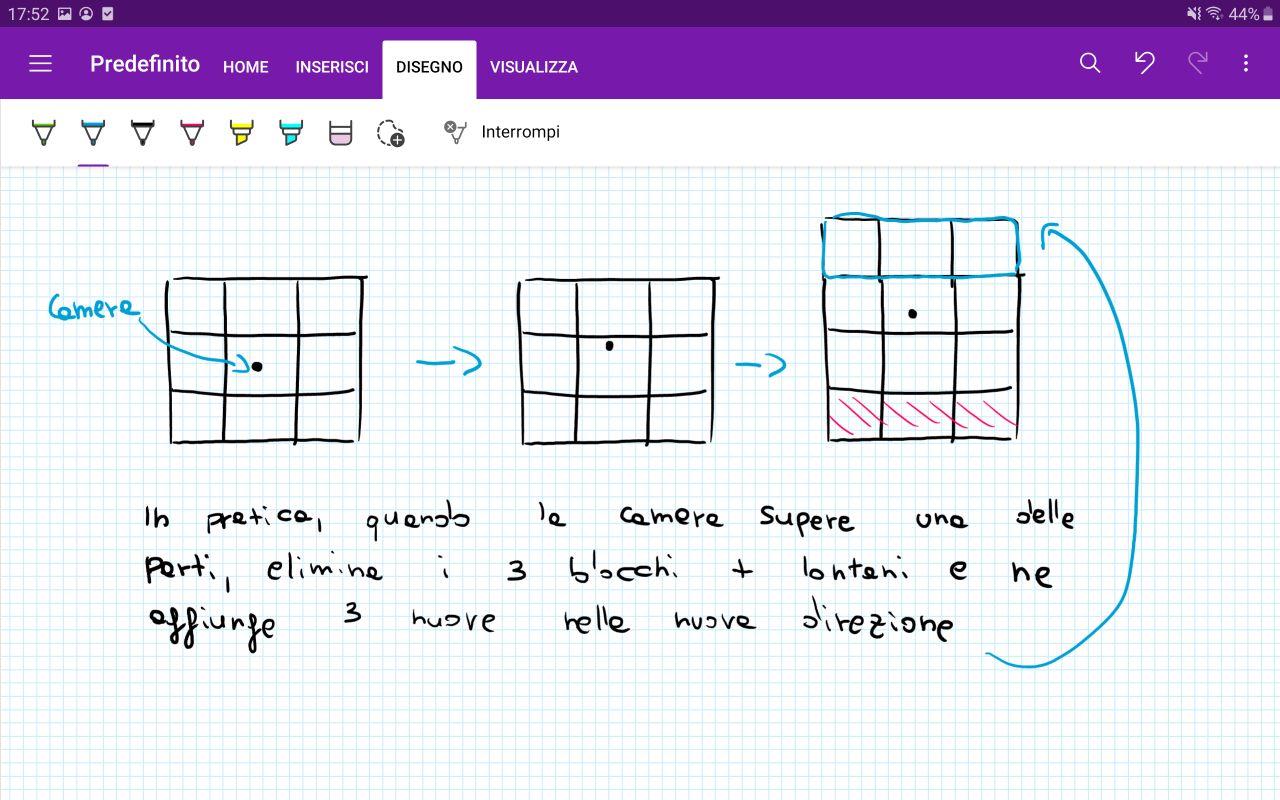 17:52 44%
Predefinito HOME INSERISCI DISEGNO VISUALIZZA
Interrompi
Camera
In pratica, quando la camera supera una delle
parti, elimina i 3 blocchi + lontani e ne
aggiunge 3 nuove nella nuova direzione